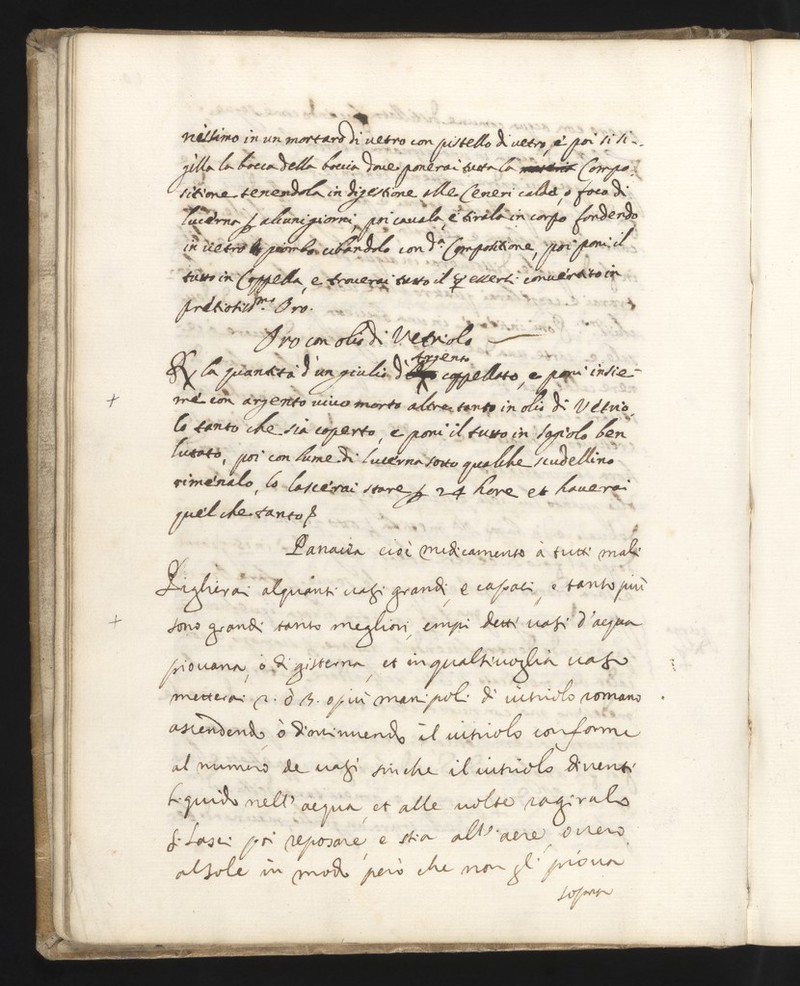 nissimo in un mortaro di vetro con pistello di vetro, e poi si si-
gilla la bocca della boccia dove ponerai tutta la materia Compo-
sitione tenendola in digestione alle Ceneri calde, o foco di
lucerna p alcuni giorni, poi cavala, e tirala in corpo fondendo
in vetro piombo cibandolo con d.ª Compositione, poi poni il
tutto in Coppella, e troverai tutto il ☿ esserti convertito in
pretiosiss.mo Oro.
Oro con olio di Vetriolo
℞ la quantità d'un giulio d' Argento coppellato, e poni insie-
me con argento vivo morto altretanto in olio di Vetrio-
lo tanto che sia coperto, e poni il tutto in bociolo ben
lutato, poi con lume di lucerna sotto qualche scudellino
rimenalo, lo lascerai stare p 24 hore et haverai
quel che tanto
Panacea cioè medicamento à tutti mali
Piglierai alquanti vasi grandi, e capaci, e tanto più
sono grandi tanto megliori, empi detti vasi d'acqua
piovana, ò di gisterna, et in qualsivoglia vaso
metterai 2. ò 3. o più manipoli di vitriolo romano
ascendendo, ò diminuendo il vitriolo conforme
al numero de vasi sinche il vitriolo diventi
liquido nell'acqua, et alle volte ragiralo
si lasci poi reposare, e stia all'aere, overo
al sole in modo però che non gli piova
sopra